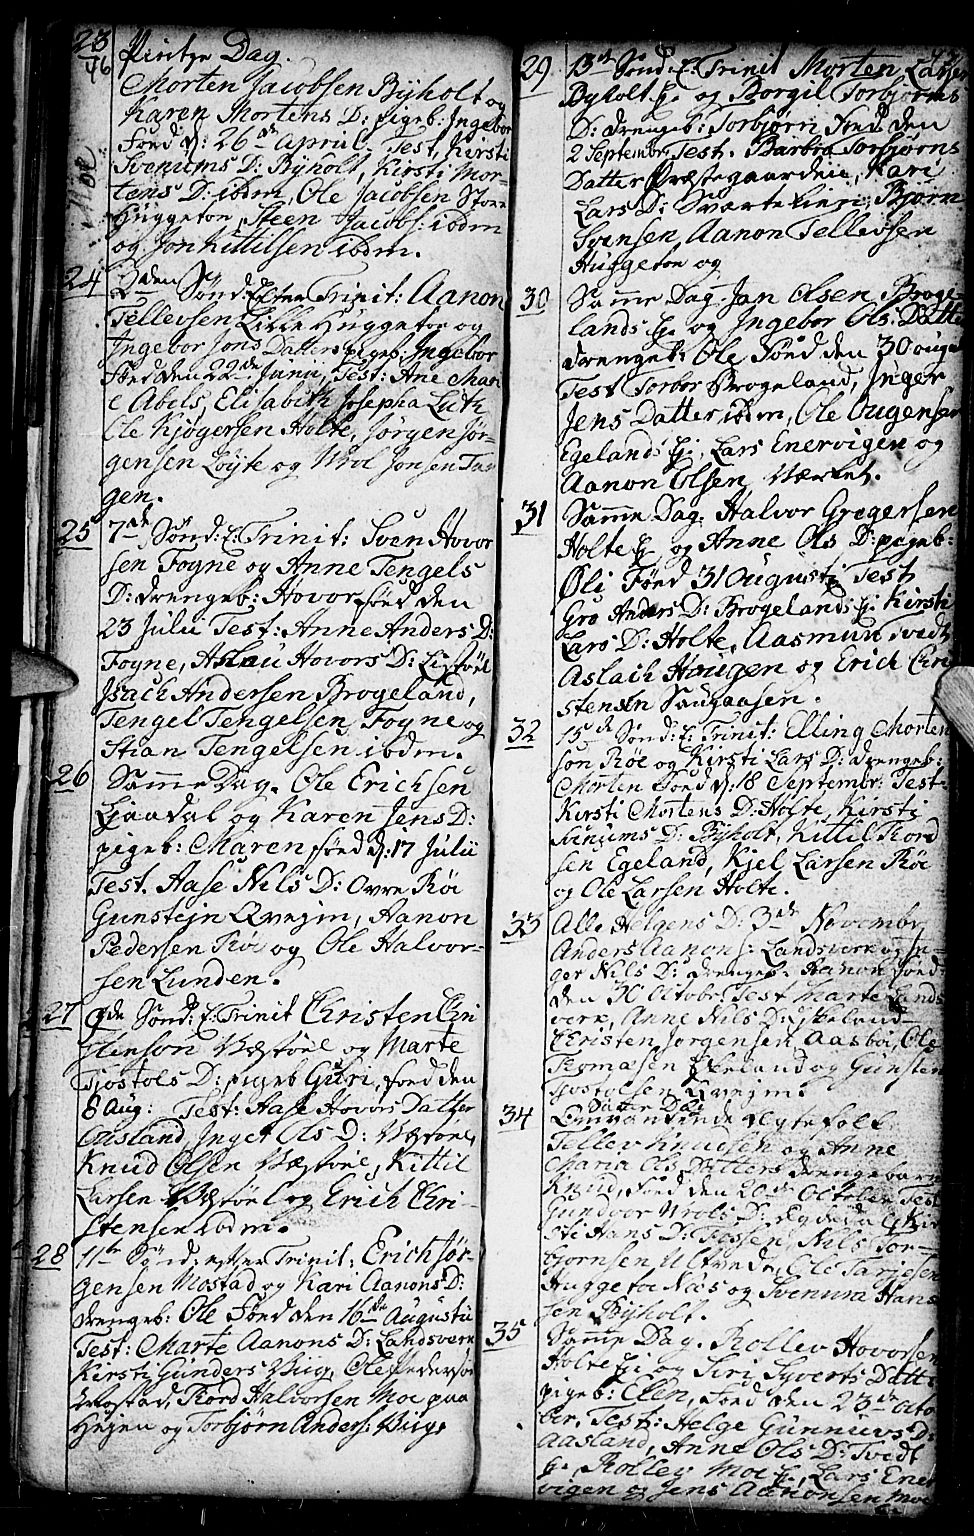 23 Pintze Dag.
46 Morten Jacobsen Bÿholt og
Karen Mortens D: pigeb: Ingebor
Fönd d: 26de April. Test, Kirsti
Sveniums D: Bÿholt, Kirsti Mor-
tens D: ibdm, Ole Jacobsen Store
Huggetoe, Steen Jacobs: ibdm
og Jon Kittilsen ibdm.
24 3den Sönd: Efter Trinit: Aanon
Tellevsen Lille Huggetoe og
Ingebor Jons Datters pigeb: Ingebor
Föed den 22de Junii, Test: Ane Mari
e Abels, Elisabeth Josepha Luth
Ole Kjögersen Holte, Jörgen Jör-
gensen Löyte og Wrol Jonsen Tar
gen.
25 7de Sönd: E: Trinit: Sven Hovor
sen Fogne og Anne Tengels
D: drengeb: Hovor föed den
23 Julii Test: Anne Anders D:
Fogne, Aslau Hovors D: Listöel
Isach Andersen Brogeland,
Tengel Tengelsen Fogne og
Stian Tengelsen ibdm.
26 Samme Dag. Ole Erichsen
Liaadal og Karen Jens D:
pigeb: Maren föed d: 17 Julii
Test. Aase Nils D: Ovre Röe
Gunstejn Qvejm, Aanon
Pedersen Röe og Ole Halvor-
sen Lunden.
27 9de Sönd: E: Trinit Christen Chri
stensön Væstöel og Marte
Tjöstols D: pigeb Guri, föed den
8 Aug: Test: Aase Hovors Datter
Ausland, Inget Ols D: Væstöel,
Knud Olsen Væstöel, Kittil
Larsen Væstöel og Erich Chri-
stensen ibdm.
28 11te Sönd: efter Trinit: Erich Jör-
gensen Mostad og Kari Aanons D:
drengeb: Ole Föed den 16de Augustii
Test: Marte Aanons D: Landsverk
Kirsti Gunders Vüg, Ole Pedersön
Mostad, Tiord Halvorsen Moe paa
Hejen og Torbjörn Anders: Vüg.
29 13de Sönd: E: Trinit Morten Larsen
Byholt Ej: og Borgil Torbjörns
D: drengeb: Torbjörn Föed den
2 Septembr Test. Barbra Torbjörns
Datter Præstegaarden, Kari
Lars D: Sværtelinj: Bjorn
Svensen, Aanon Tellevsen
Huggetoe og
30 Samme Dag. Jan Olsen Broge-
lands Ej: og Ingebor Ols: Datter
drengeb: Ole Föed den 30 Augu
Test Torbor Brogeland, Inger
Jens Datter ibdm, Ole Augensen
Egelands Ej:, Lars Enervigen og
Aanon Olsen Værket.
31 Samme Dag. Halvor Gregersen
Holte Ej: og Anne Ols D: pigeb:
Öli Föed 31 Augusti Test
Gro Anders D: Brogelands Ej: Kirsti
Lars D: Holte, Aasmun Tvedt
Aslach Haugen og Erich Chri
stensen Saugaasen.
32 15de Sönd: E: Trinit: Elling Morten
sön Röe og Kirsti Lars D: drengeb:
Morten Föed d: 18 Septembr: Test:
Kirsti Mortens D: Holte, Kirsti
Sveniums D: Bÿholt, Kittil Tiord
sen Egeland, Kjel Larsen Röe
og Ole Larsen Holte.
33 Alle Helgens D: 3de Novembr
Anders Aanons: Landsverk og In-
ger Nils D: drengeb: Aanon föed
den 30 Octobr: Test Marte Lands
verk, Anne Nils D: Egeland
Christen Jörgensen Aasböe, Ole
Thomasen Egeland og Gunsten
Tjostolsen Qvejm.
34 Omvankende Ægtefolk
Tellev Knudsen og Anne
Maria Ols Datters drengebarn
Knud, Föed den 20de Octobr Test
Gundvor Wrols D: Egdedal, Kir
sti Hans D: Fossen, Nils Tor-
bjornsen Ulltvedt, Ole Tarjesen
Huggetoe Næs og Svenum Hans
sen Byholt.
35 Samme Dag. Rollev Hovorsen
Holte Ej: og Siri Syverts Datter
pigeb: Ellen, Föed den 23de Octo
ber, Test: Helge Gunnuvs D:
Aasland, Anne Ols D: Tvedt
Ej: Rollev Moe Ej:, Lars Ener
vigen og Jens Aanonsen Moe